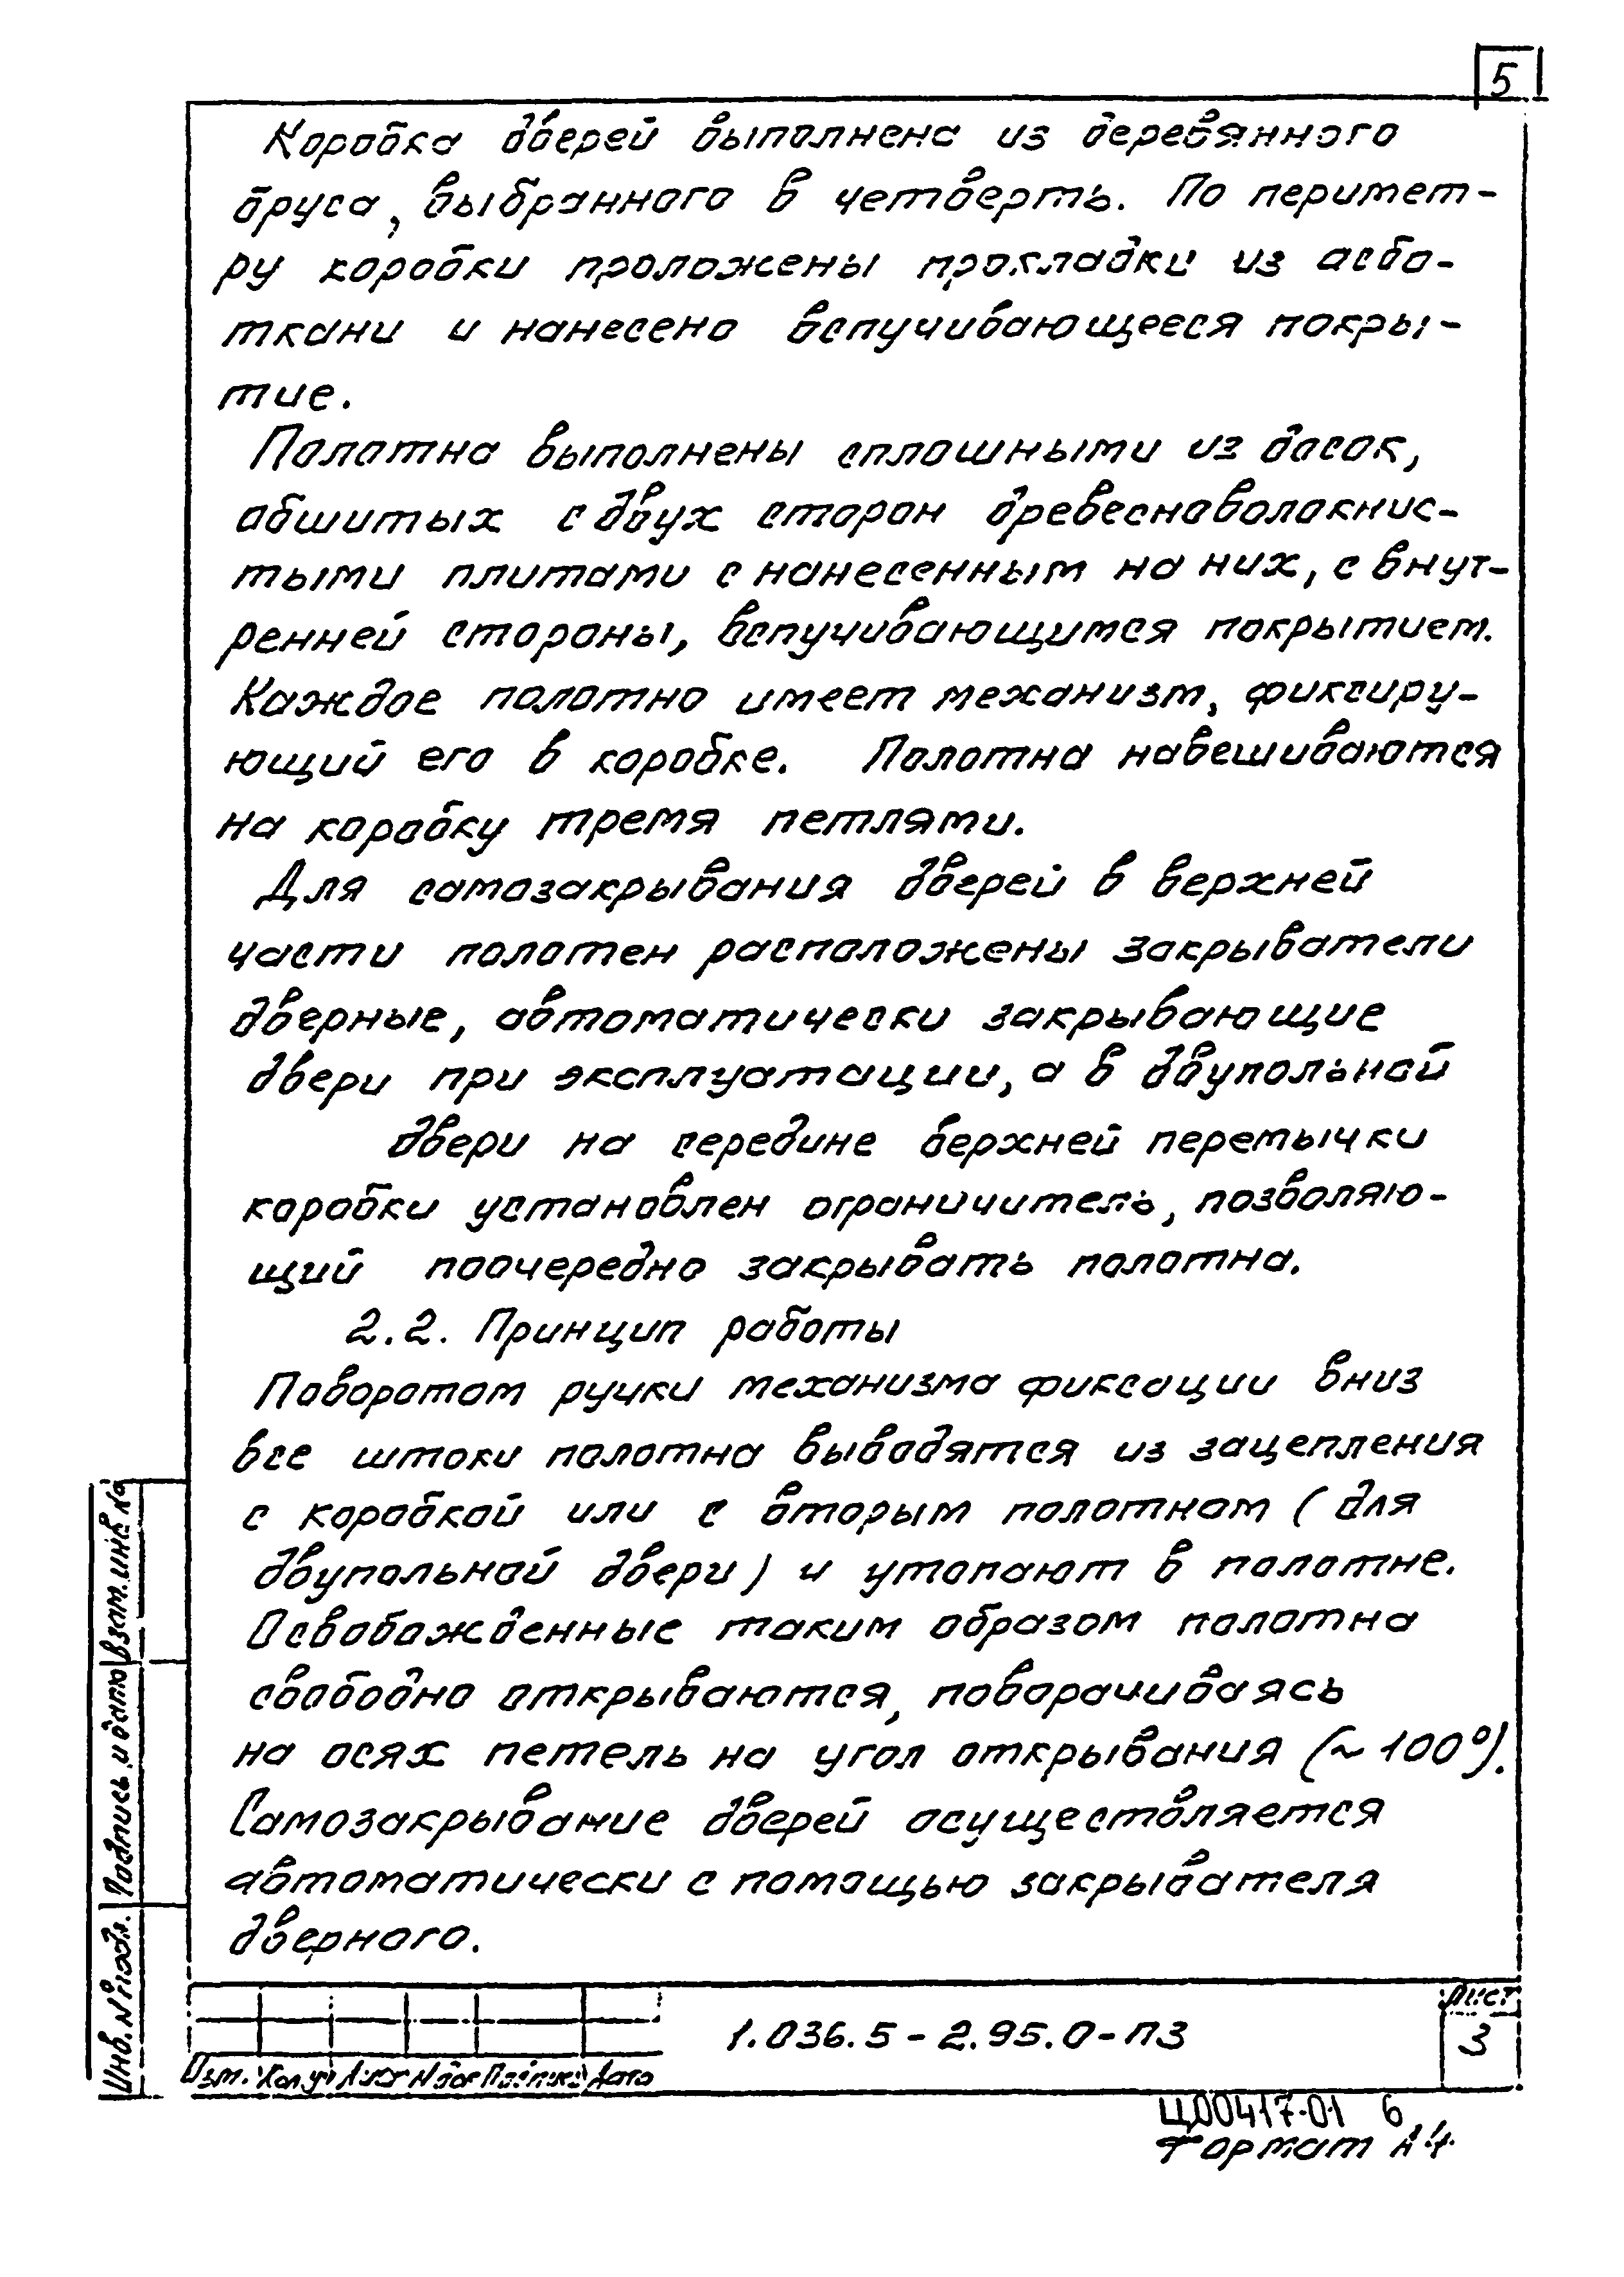 5
Коробка дверей выполнена из деревянного
бруса, выбранного в четверть. По перимет-
ру коробки проложены прокладки из асбо-
ткани и нанесено вспучивающееся покры-
тие.
Полотна выполнены сплошными из досок,
обшитых с двух сторон древесноволокнис-
тыми плитами с нанесенным на них, с внут-
ренней стороны, вспучивающимся покрытием.
Каждое полотно имеет механизм, фиксиру-
ющий его в коробке. Полотна навешиваются
на коробку тремя петлями.
Для самозакрывания дверей в верхней
части полотен расположены закрыватели
дверные, автоматически закрывающие
двери при эксплуатации, а в двупольной
двери на середине верхней перемычки
коробки установлен ограничитель, позволяю-
щий поочередно закрывать полотна.
2.2. Принцип работы
Поворотом ручки механизма фиксации вниз
все штоки полотна выводятся из зацепления
с коробкой или с вторым полотном (для
двупольной двери) и утопают в полотне.
Освобожденные таким образом полотна
свободно открываются, поворачиваясь
на осях петель на угол открывания (~100°).
Самозакрывание дверей осуществляется
автоматически с помощью закрывателя
дверного.
Инв. № подл. Подпись и дата Взам. инв. №
Изм. Кол.уч Лист № док Подпись Дата
1.036.5-2.95.0-ПЗ
Лист
3
Ц00417-01 6
Формат А4